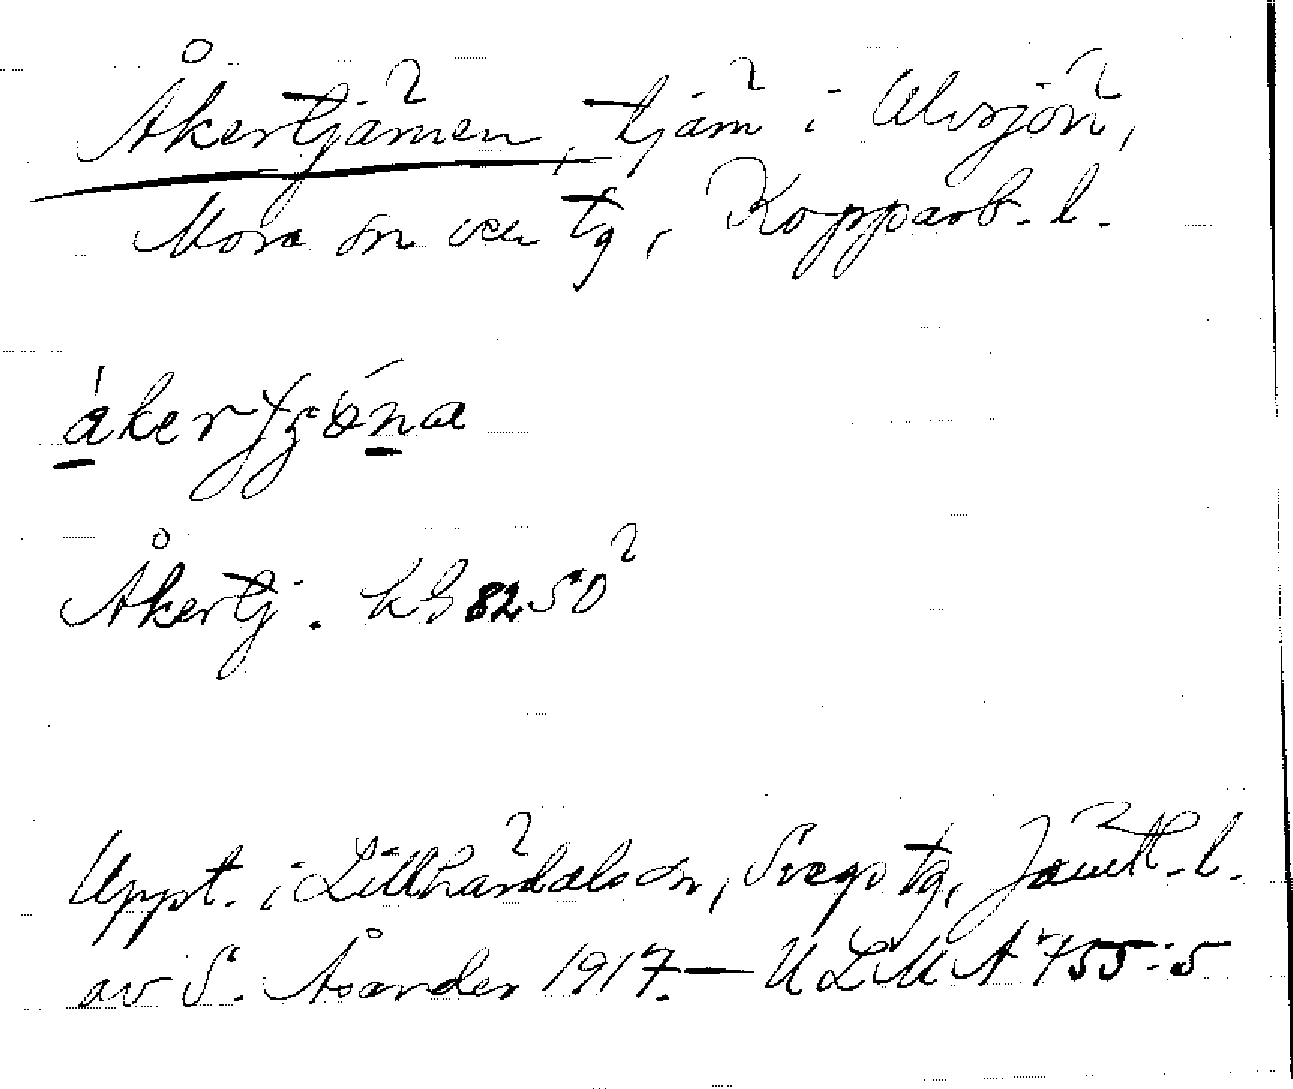 Åkertjärnen, tjärn i Älvsjön,
Mora sn och tg, Kopparb. l.
åkertjz̨ǿna
Åkertj. KB 82 SO
Uppt. i Lillhärdals sn, Svegs tg, Jämtl. l.
av S. Åsander 1917. — ULMA 755:5